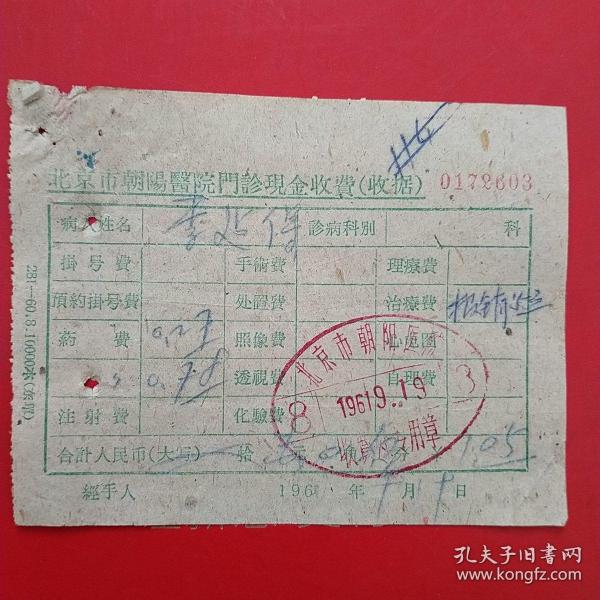 北京市朝陽醫院門診現金收費(收据) 0172603
病人姓名 李 保 診病科别 科
掛号費 手術費 理療費
預約掛号費 处置費 治療費
葯費 0.27 照像費 心电圖
0.78 透視費 自理費
注射費 化驗費
合計人民币(大写) 拾 元 0 角 分 1.05
經手人 196 年 9 月 19 日
北京市朝阳医院
8 1961 9. 19 3
收費专用章
281-60.8.10000本
孔夫子旧书网
www.kongfz.com